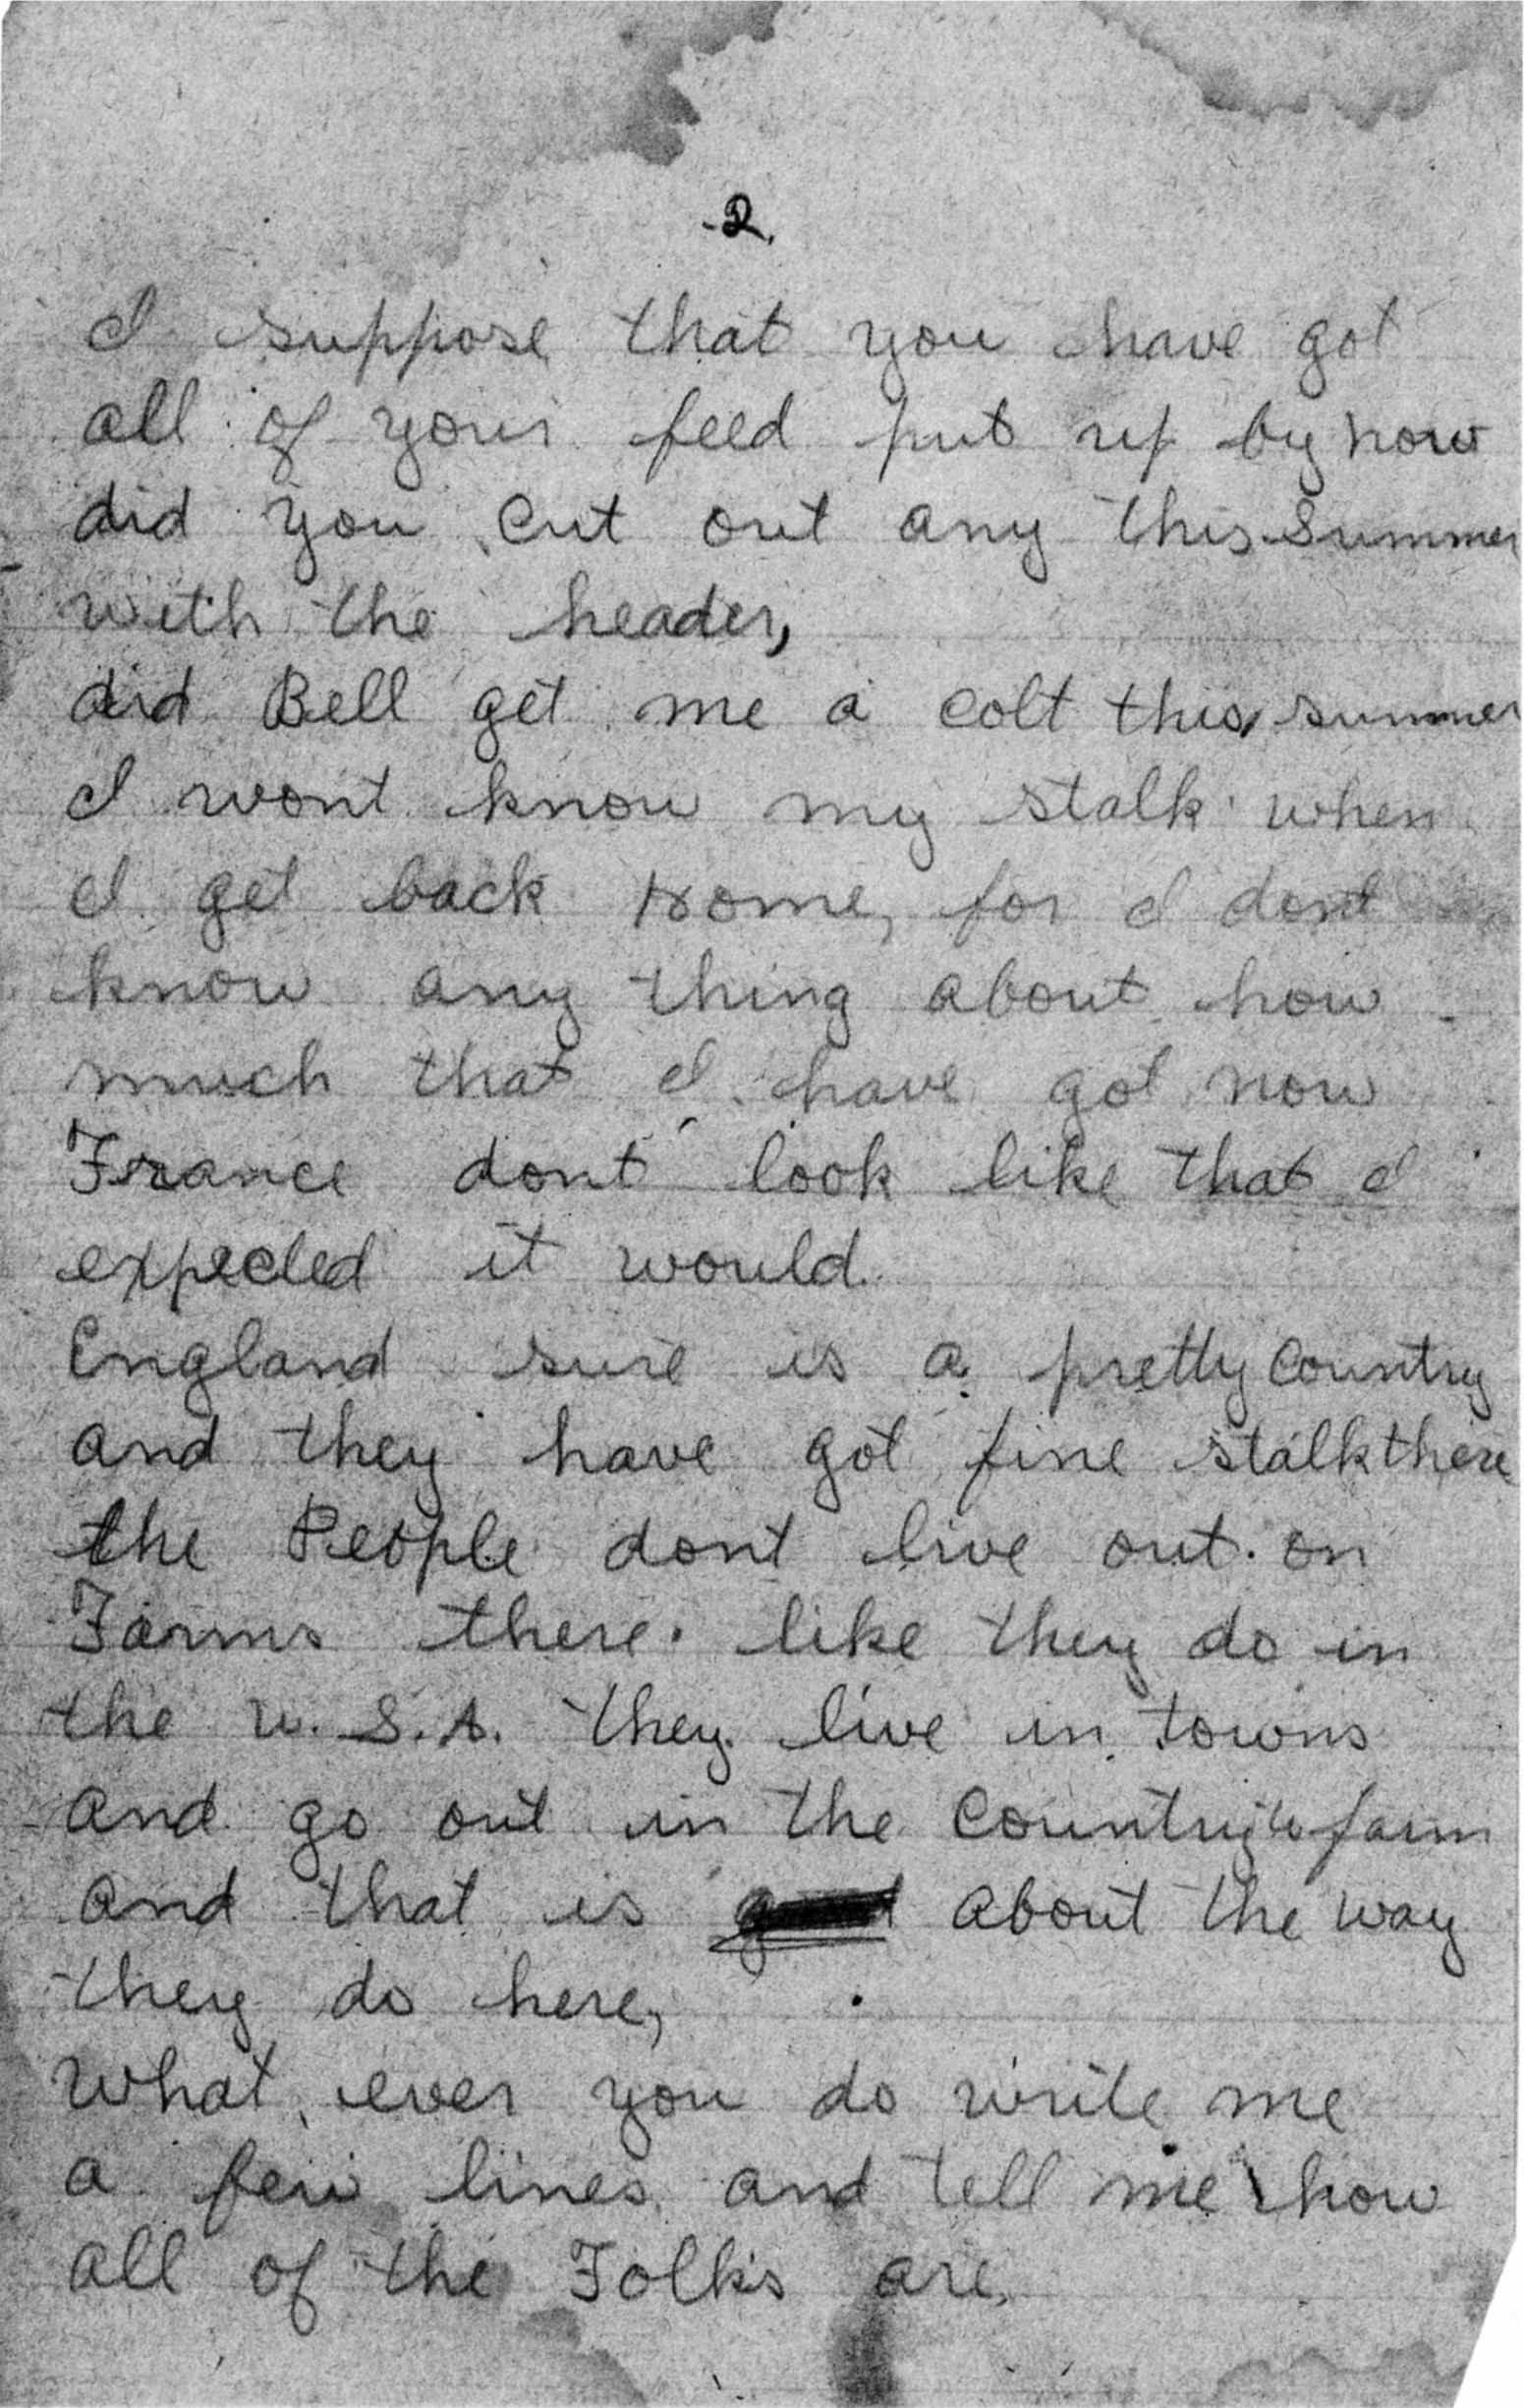 2.
I suppose that you have got
all of your feed put up by now
did you cut out any this summer
with the header,
did Bell get me a colt this summer
I wont know my stalk when
I get back Home, for I dont
know any thing about how
much that I have got now
France dont look like that I
expected it would.
England sure is a pretty country
and they have got fine stalk there
the People dont live out on
Farms there. like they do in
the U.S.A. they live in towns
and go out in the country to farm
and that is about the way
they do here,
What ever you do write me
a few lines and tell me how
all of the Folks are,